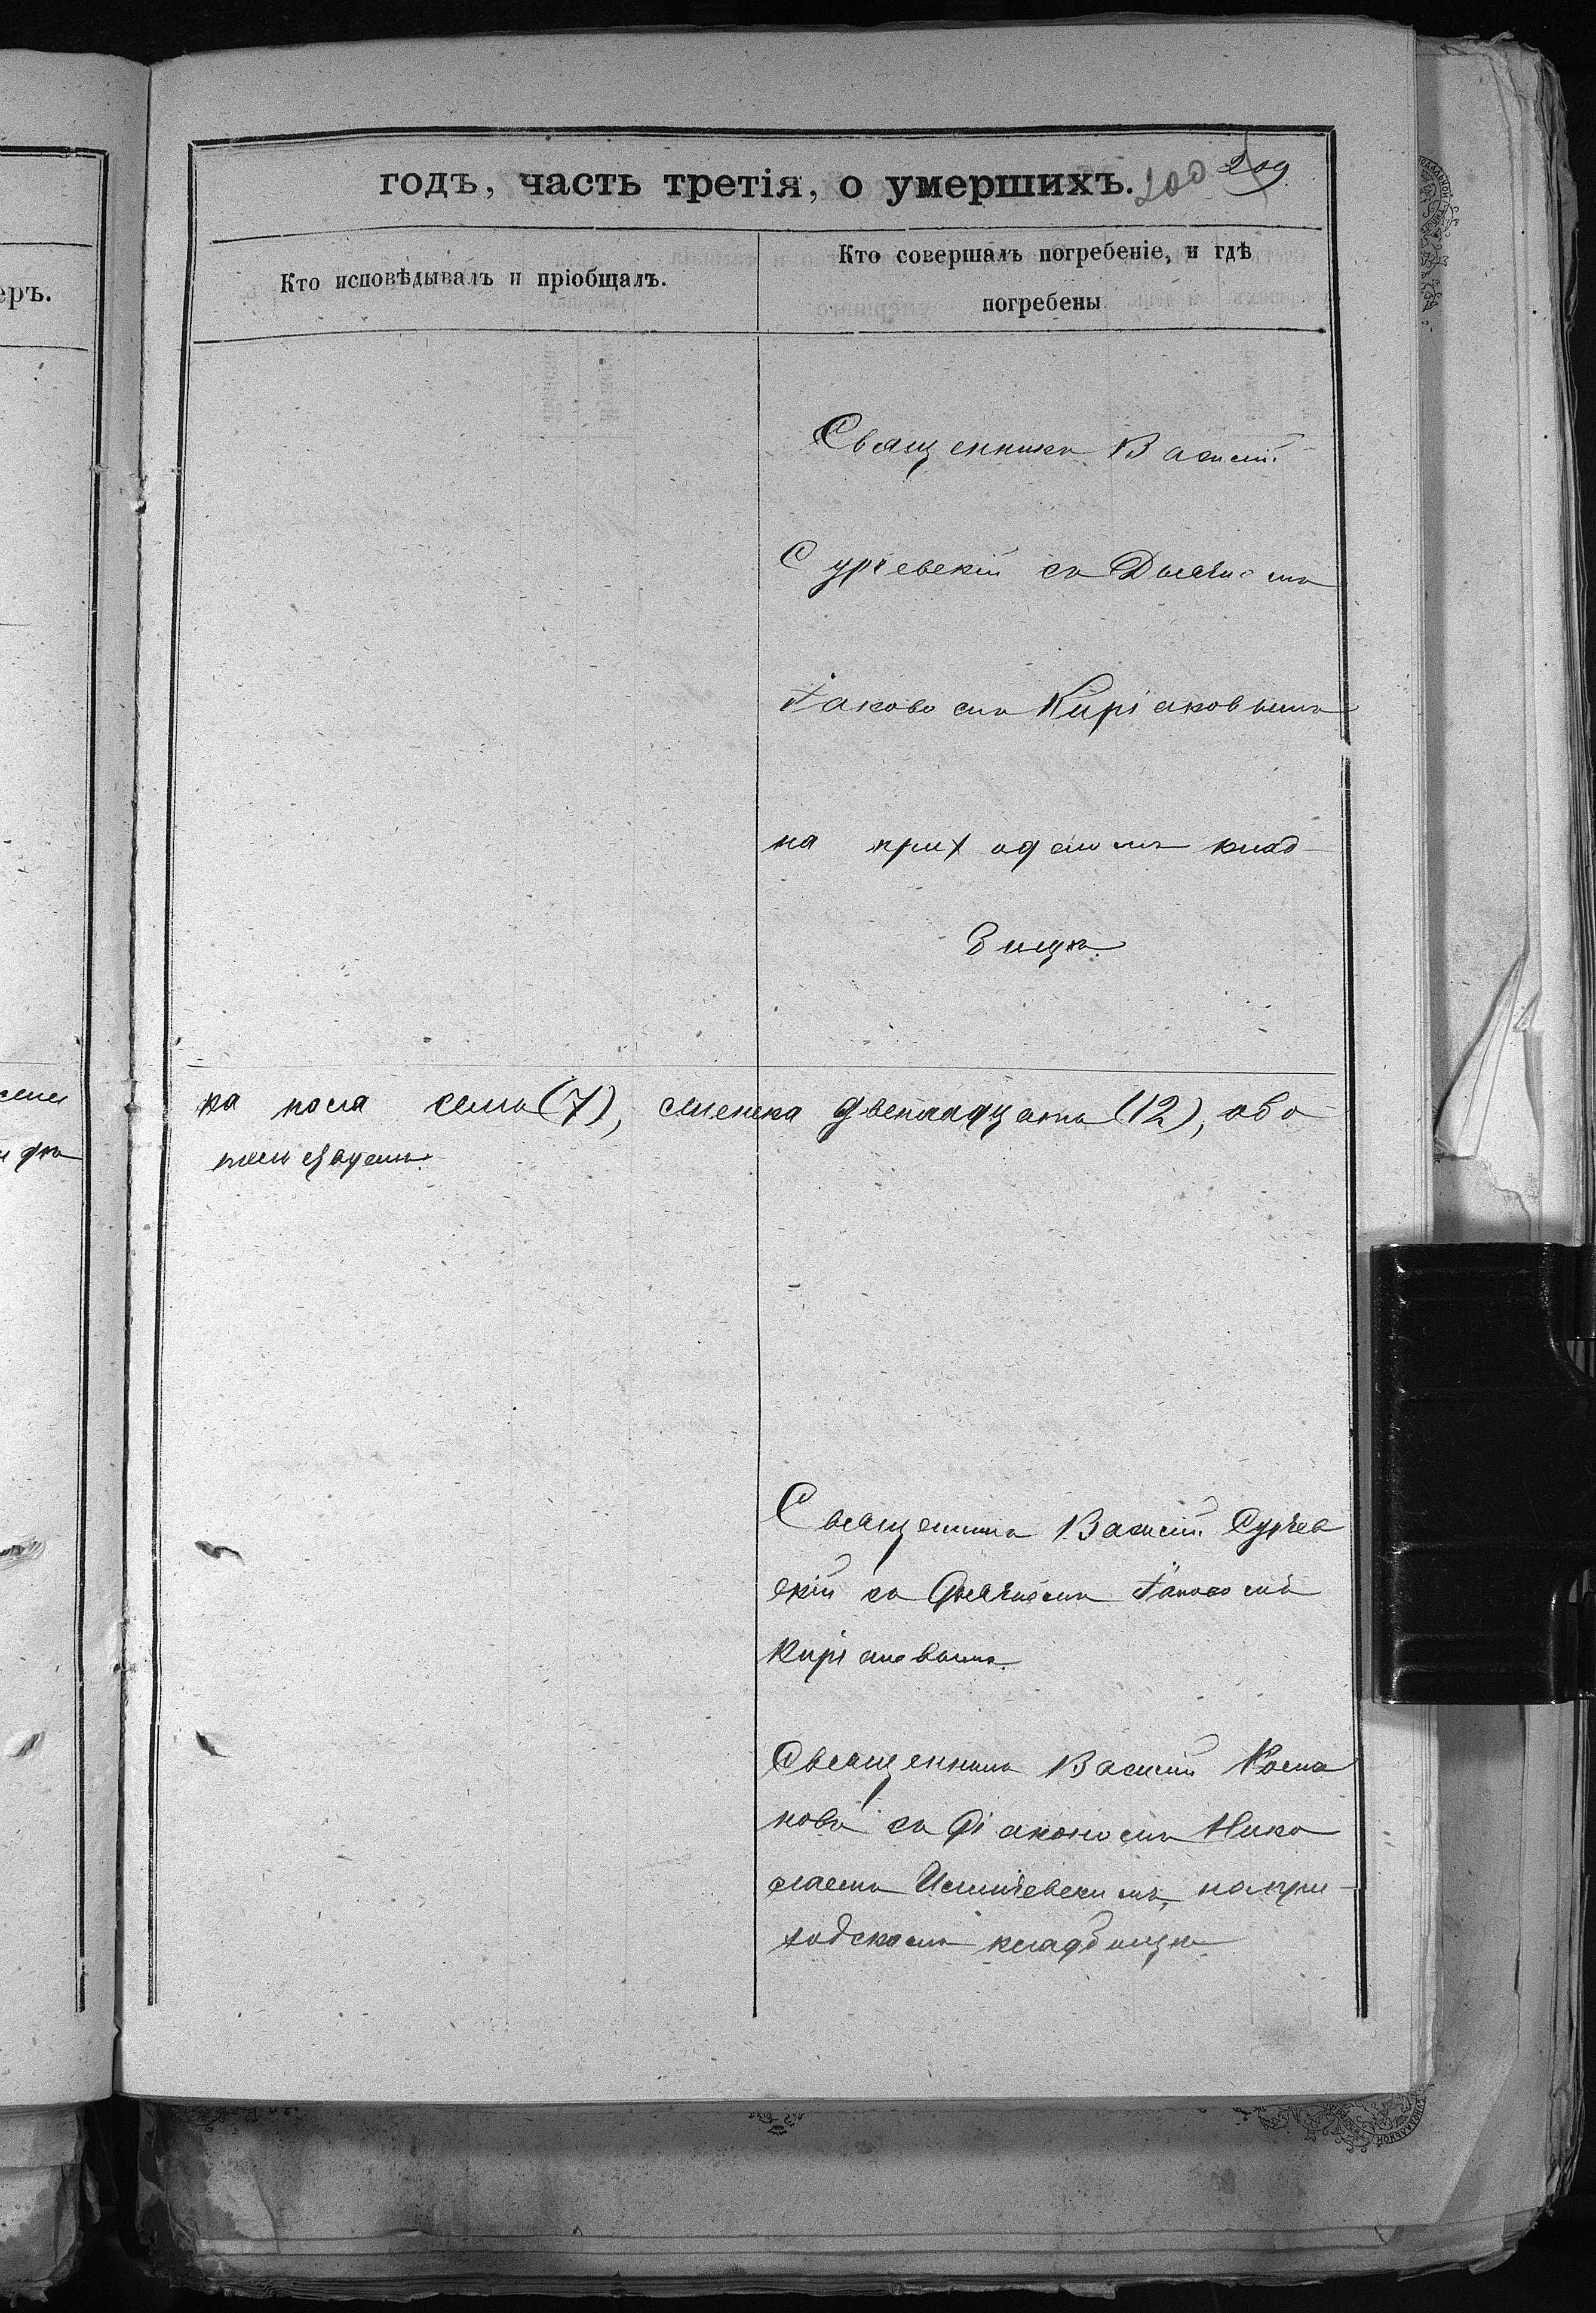 еръ.
годъ, часть третія, о умершихъ. 200 209
Кто исповѣдывалъ и пріобщалъ.
Кто совершалъ погребеніе, и гдѣ
погребены
Священникъ Василій
Сурчевскій съ Дьячкомъ
Іаковомъ Киріаковымъ
на приходскомъ клад-
бищѣ.
ка пола семь (7), женска двенадцать (12), обо
Священникъ Василій Сурчев
скій съ Дьячкомъ Іаковомъ
Киріаковымъ.
Священникъ Василій
новъ съ Діакономъ Нико
лаемъ на при-
ходскомъ кладбищѣ.